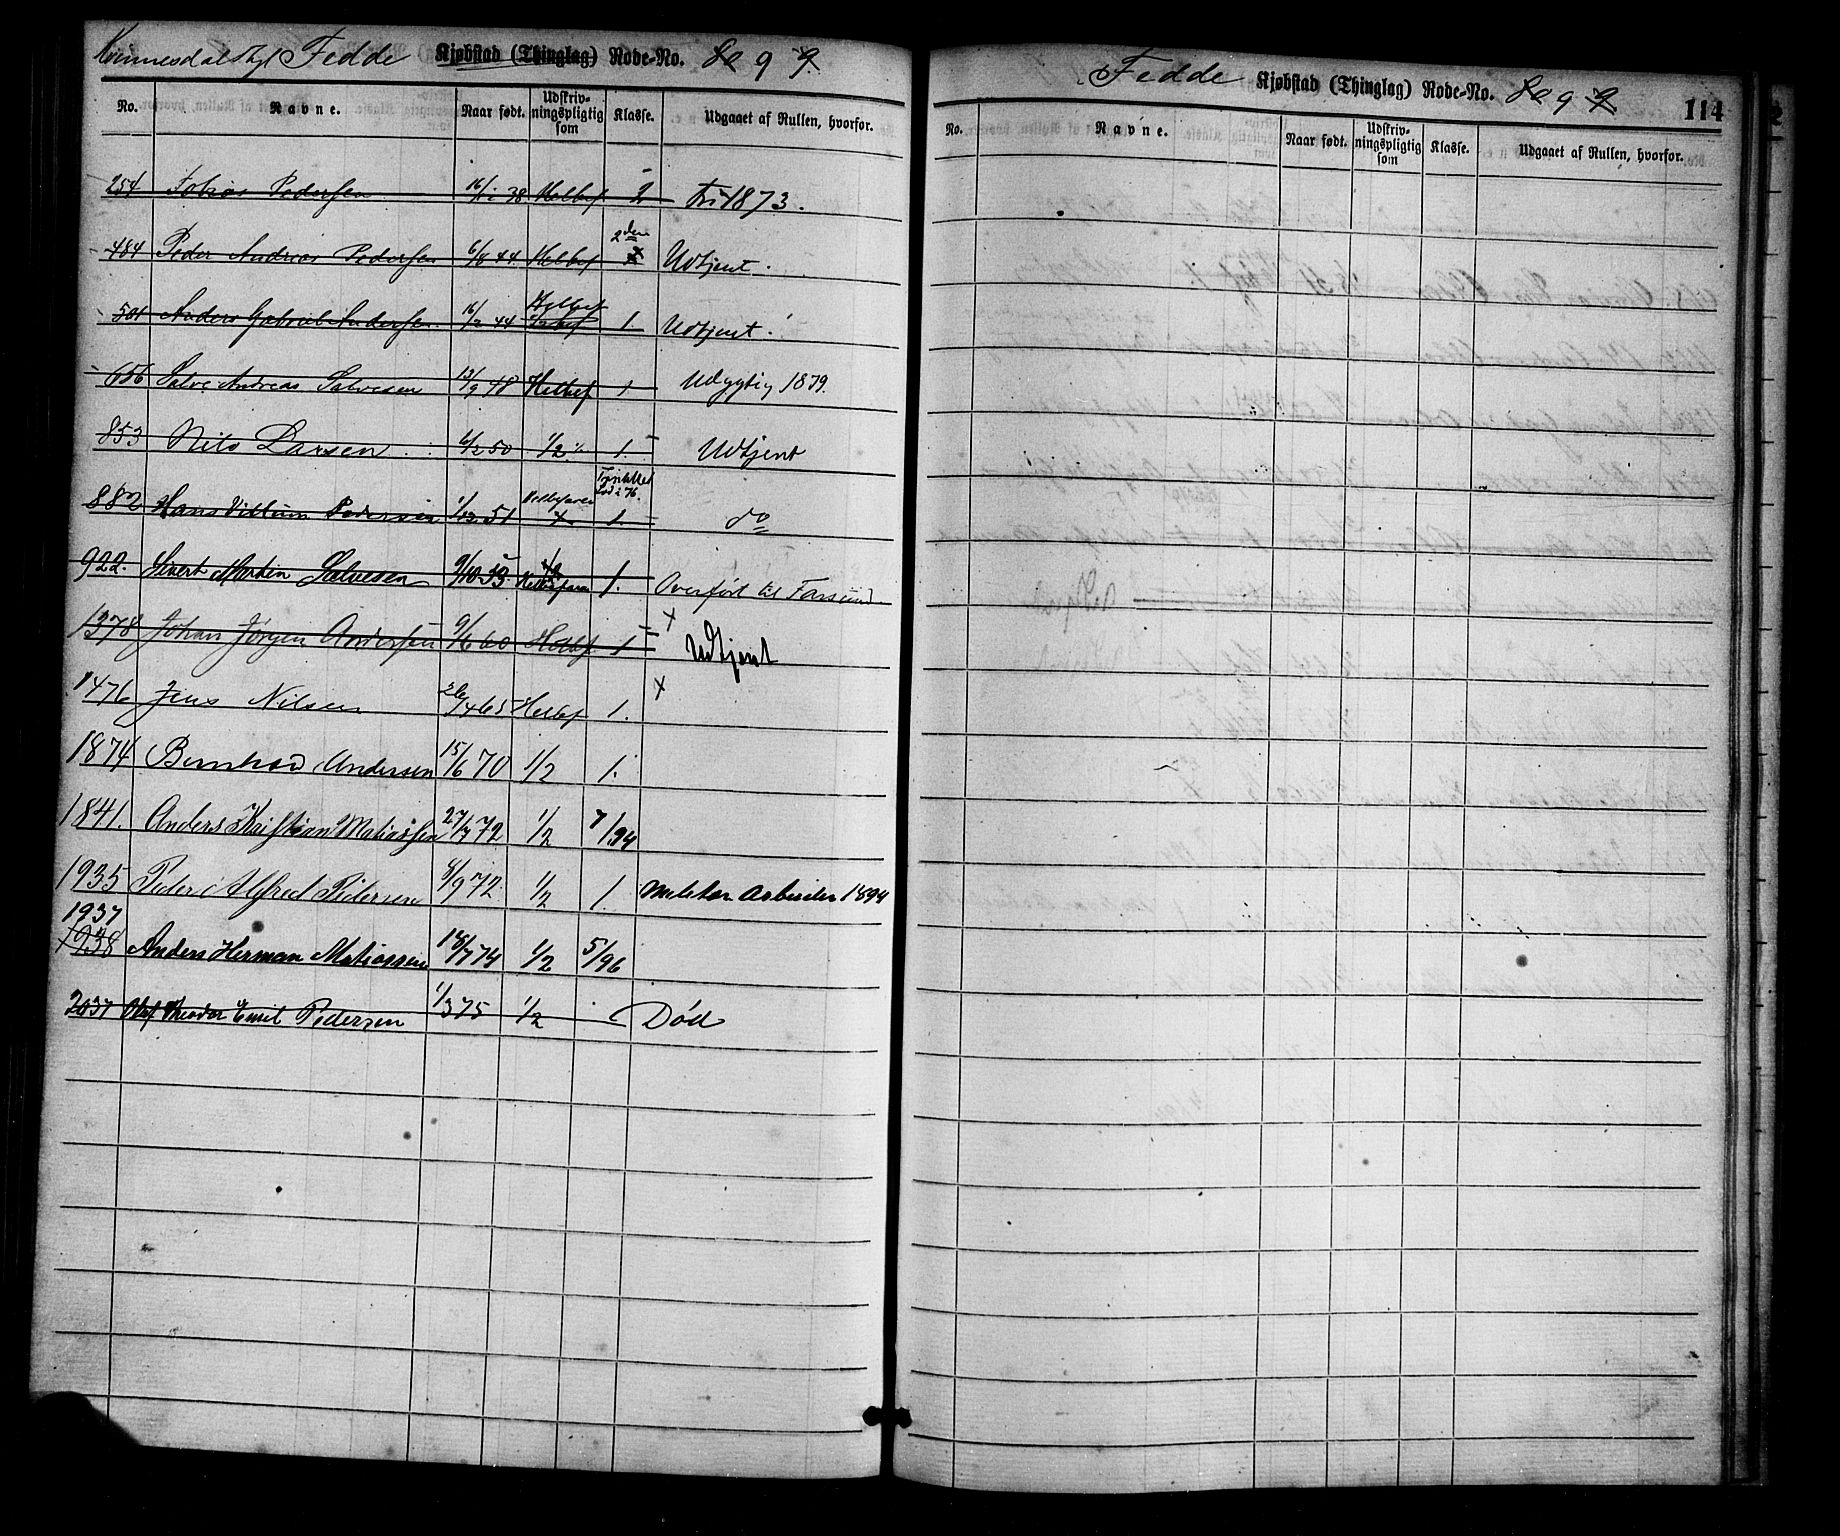 Fedde Kjøbstad (Thinglag) Rode-No. 8 9 9.
No. Navne. Naar født. Udskriv-ningspligtig som Klasse. Udgaaet af Rullen, hvorfor.
254 Tobias Pedersen 38 Helbef 2 fri 1873.
2den
484 Peder Andreas Pedersen 6/8 44. Helbef Udtjent.
Helbef
501 Anders Gabriel Andersen. 16/2 44 1. Udtjent.
656 Salve Andreas Salvesen 13/9 48 Helbef 1 Udygtig 1879.
853 Nils Larsen 6/2 50 1/2 1. Udtjent
882 Hans Villum Pedersen 1/12 51 Helbefaren 1. do
922. Sivert Martin Salvesen 9/10 53. Helbefaren 1. Overført til Farsund
1378 Johan Jørgen Andersen 9/6 60 Helbf 1 x Udtjent
1476 Jens Nilsen 26/4 65 Helbef 1. x
1874 Bernhard Andersen 15/6 70 1/2 1.
1841. Anders Kristian Matiassen 27/7 72 1/2 7/94
1935 Peder Alfred Pedersen 4/9 72. 1/2 1. Militær Arbeider 1894
1937
1938 Anders Herman Matiassen 18/7 74 1/2 5/96
2037 Olaf Theodor Emil Pedersen 1/3 75 1/2 Død
Fedde Kjøbstad (Thinglag) Rode-No. 8 9 9
114
No. Navne. Naar født. Udskriv-ningspligtig som Klasse. Udgaaet af Rullen, hvorfor.